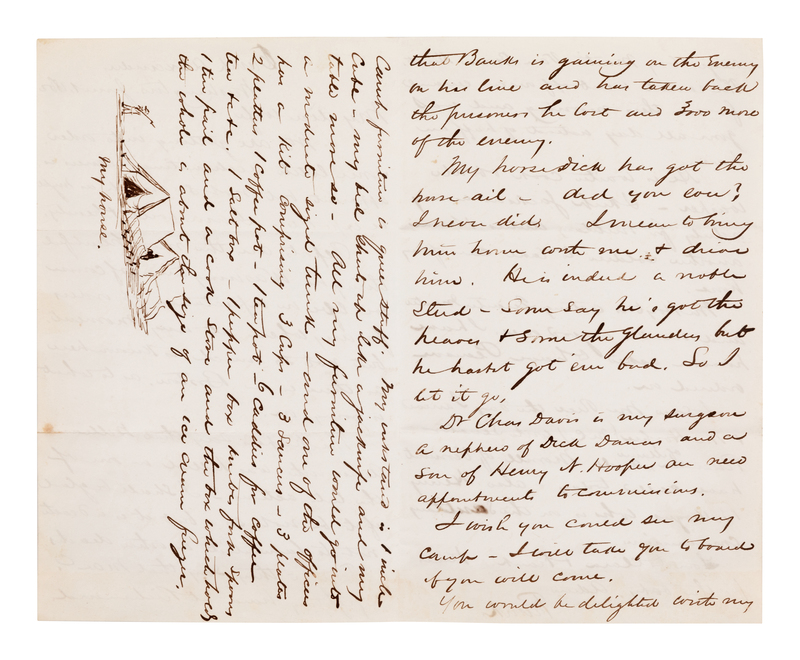 that Banks is gaining on the Enemy
on his line and has taken back
the prisoners he lost and 3000 more
of the enemy.
My horse Dick has got the
horse ail - did you ever?
I never did. I mean to bring
him home with me & drive
him. He is indeed a noble
Steed - Some say he's got the
heaves & Some the Glanders but
he hasnt got em bad. So I
let it go,
Dr Chas Davis is my surgeon
a nephew of Dick Danas and a
Son of Henry N. Hooper
appointments to commissions.
I wish you could see my
camp - I will take you to board
if you will come.
You would be delighted with my
Camp furniture is queer stuff. My inkstand is 1 inch
Cube - my bed Shuts up like a jacknife and my
table more so - All my furniture would go into
a moderate sized trunk - and one of the officers
has a kit Comprising 3 Cups - 3 Saucers - 3 plates
2 platters 1 Coffee pot - 1 teapot - 6 Caddies for coffee
tea &c. 1 Salt box - 1 pepper box knives forks Spoons
1 tin pail and a cook Stove and the box which holds
the whole is about the size of an ice cream freezer.
My house.